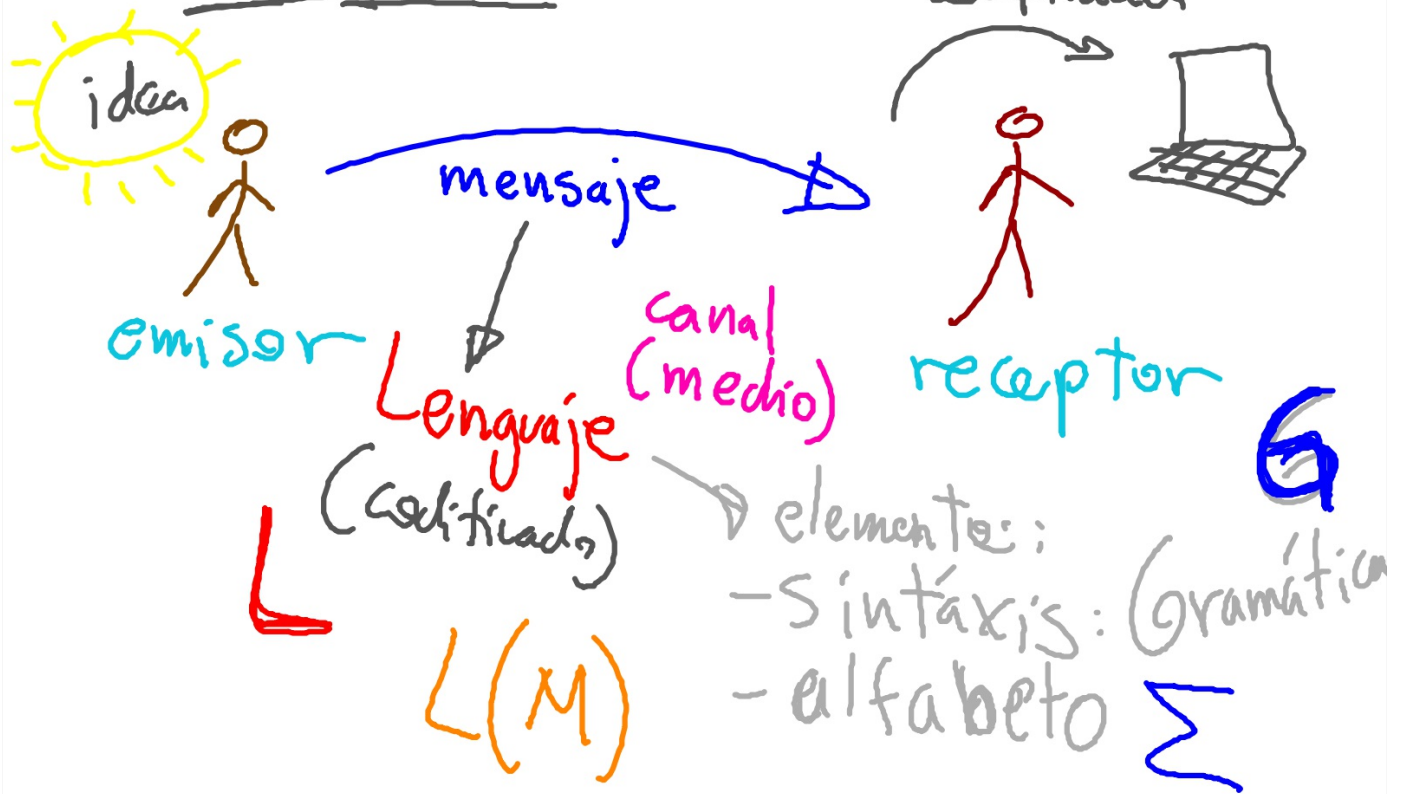 idea
mensaje
emisor
canal
(medio)
receptor
Lenguaje
(codificado)
G
elementos:
-sintáxis: Gramática
L
L(M)
-alfabeto Σ